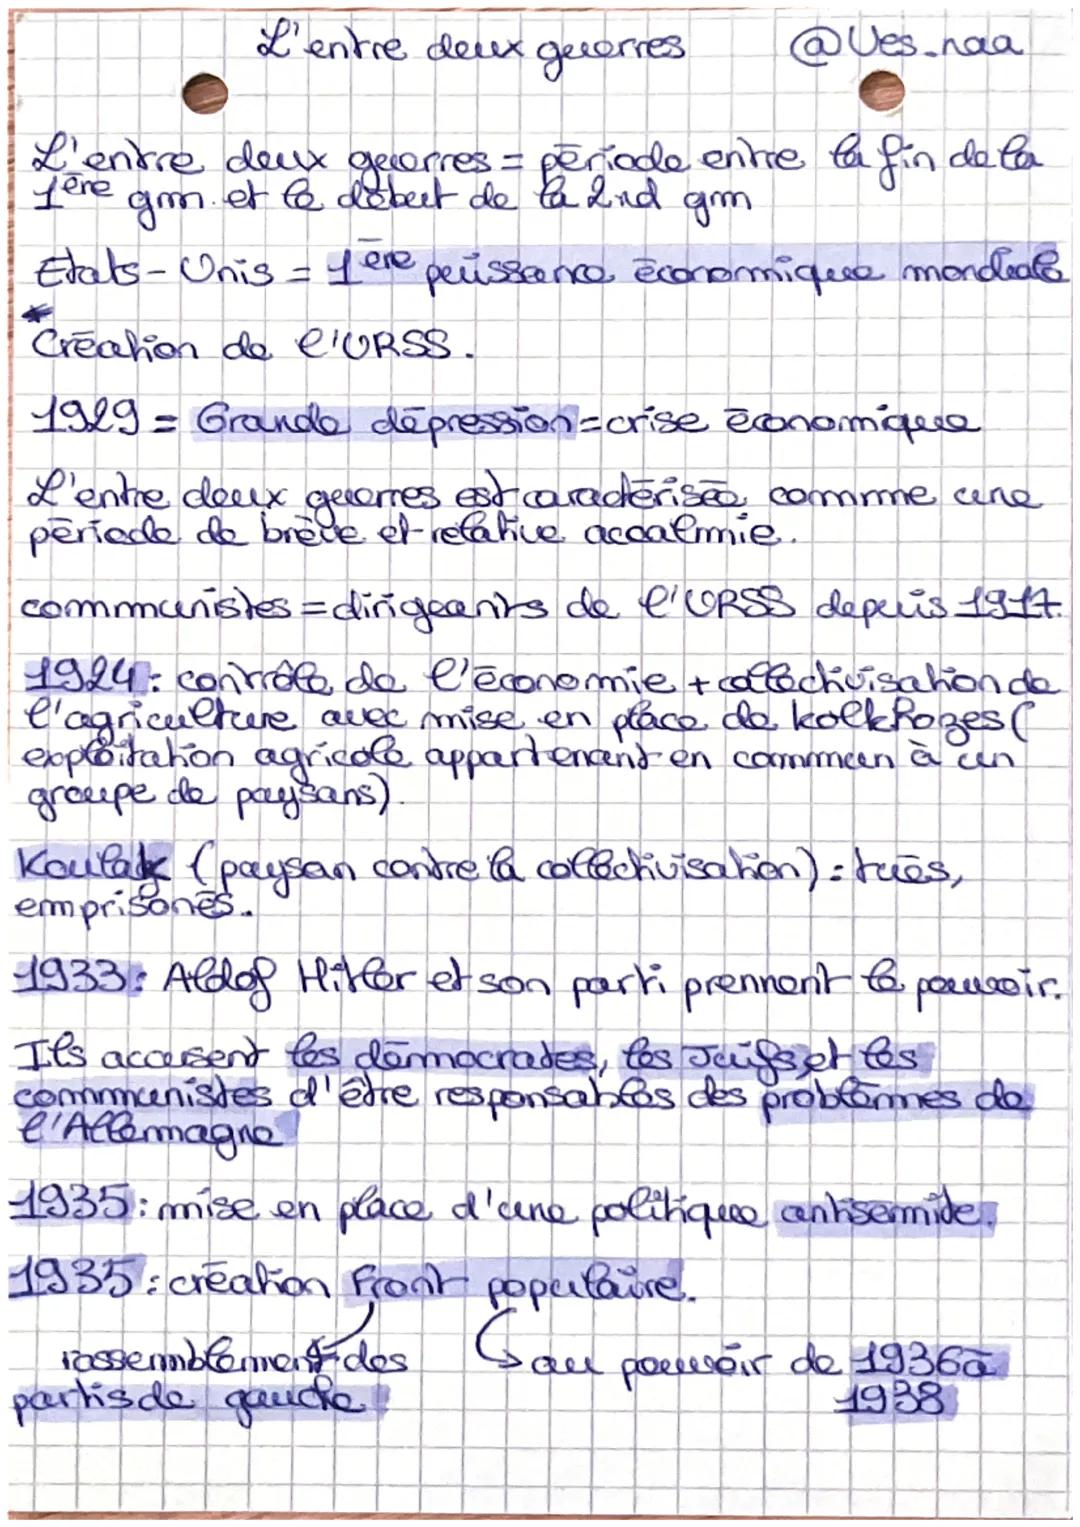 L'entre deux guerres @Ves_naa
L'entre deux guerres = période entre la fin de la
1ère gm et le début de la 2nd gm
Etats-Unis = 1ère puissance économique mondiale
* Création de l'URSS.
1929 = Grande dépression = crise économique
L'entre deux guerres est caractérisée comme une
période de brève et relative accalmie.
communistes = dirigeants de l'URSS depuis 1917.
1924 : contrôle de l'économie + collectivisation de
l'agriculture avec mise en place de kolkhozes (
exploitation agricole appartenant en commun à un
groupe de paysans).
Koulak (paysan contre la collectivisation) = tués,
emprisonés.
1933 : Aldof Hitler et son parti prennent le pouvoir.
Ils accusent les démocrates, les Juifs et les
communistes d'être responsables des problèmes de
l'Allemagne
1935 : mise en place d'une politique antisémite.
1935 : création Front populaire.
rassemblement des
partis de gauche
au pouvoir de 1936 à
1938